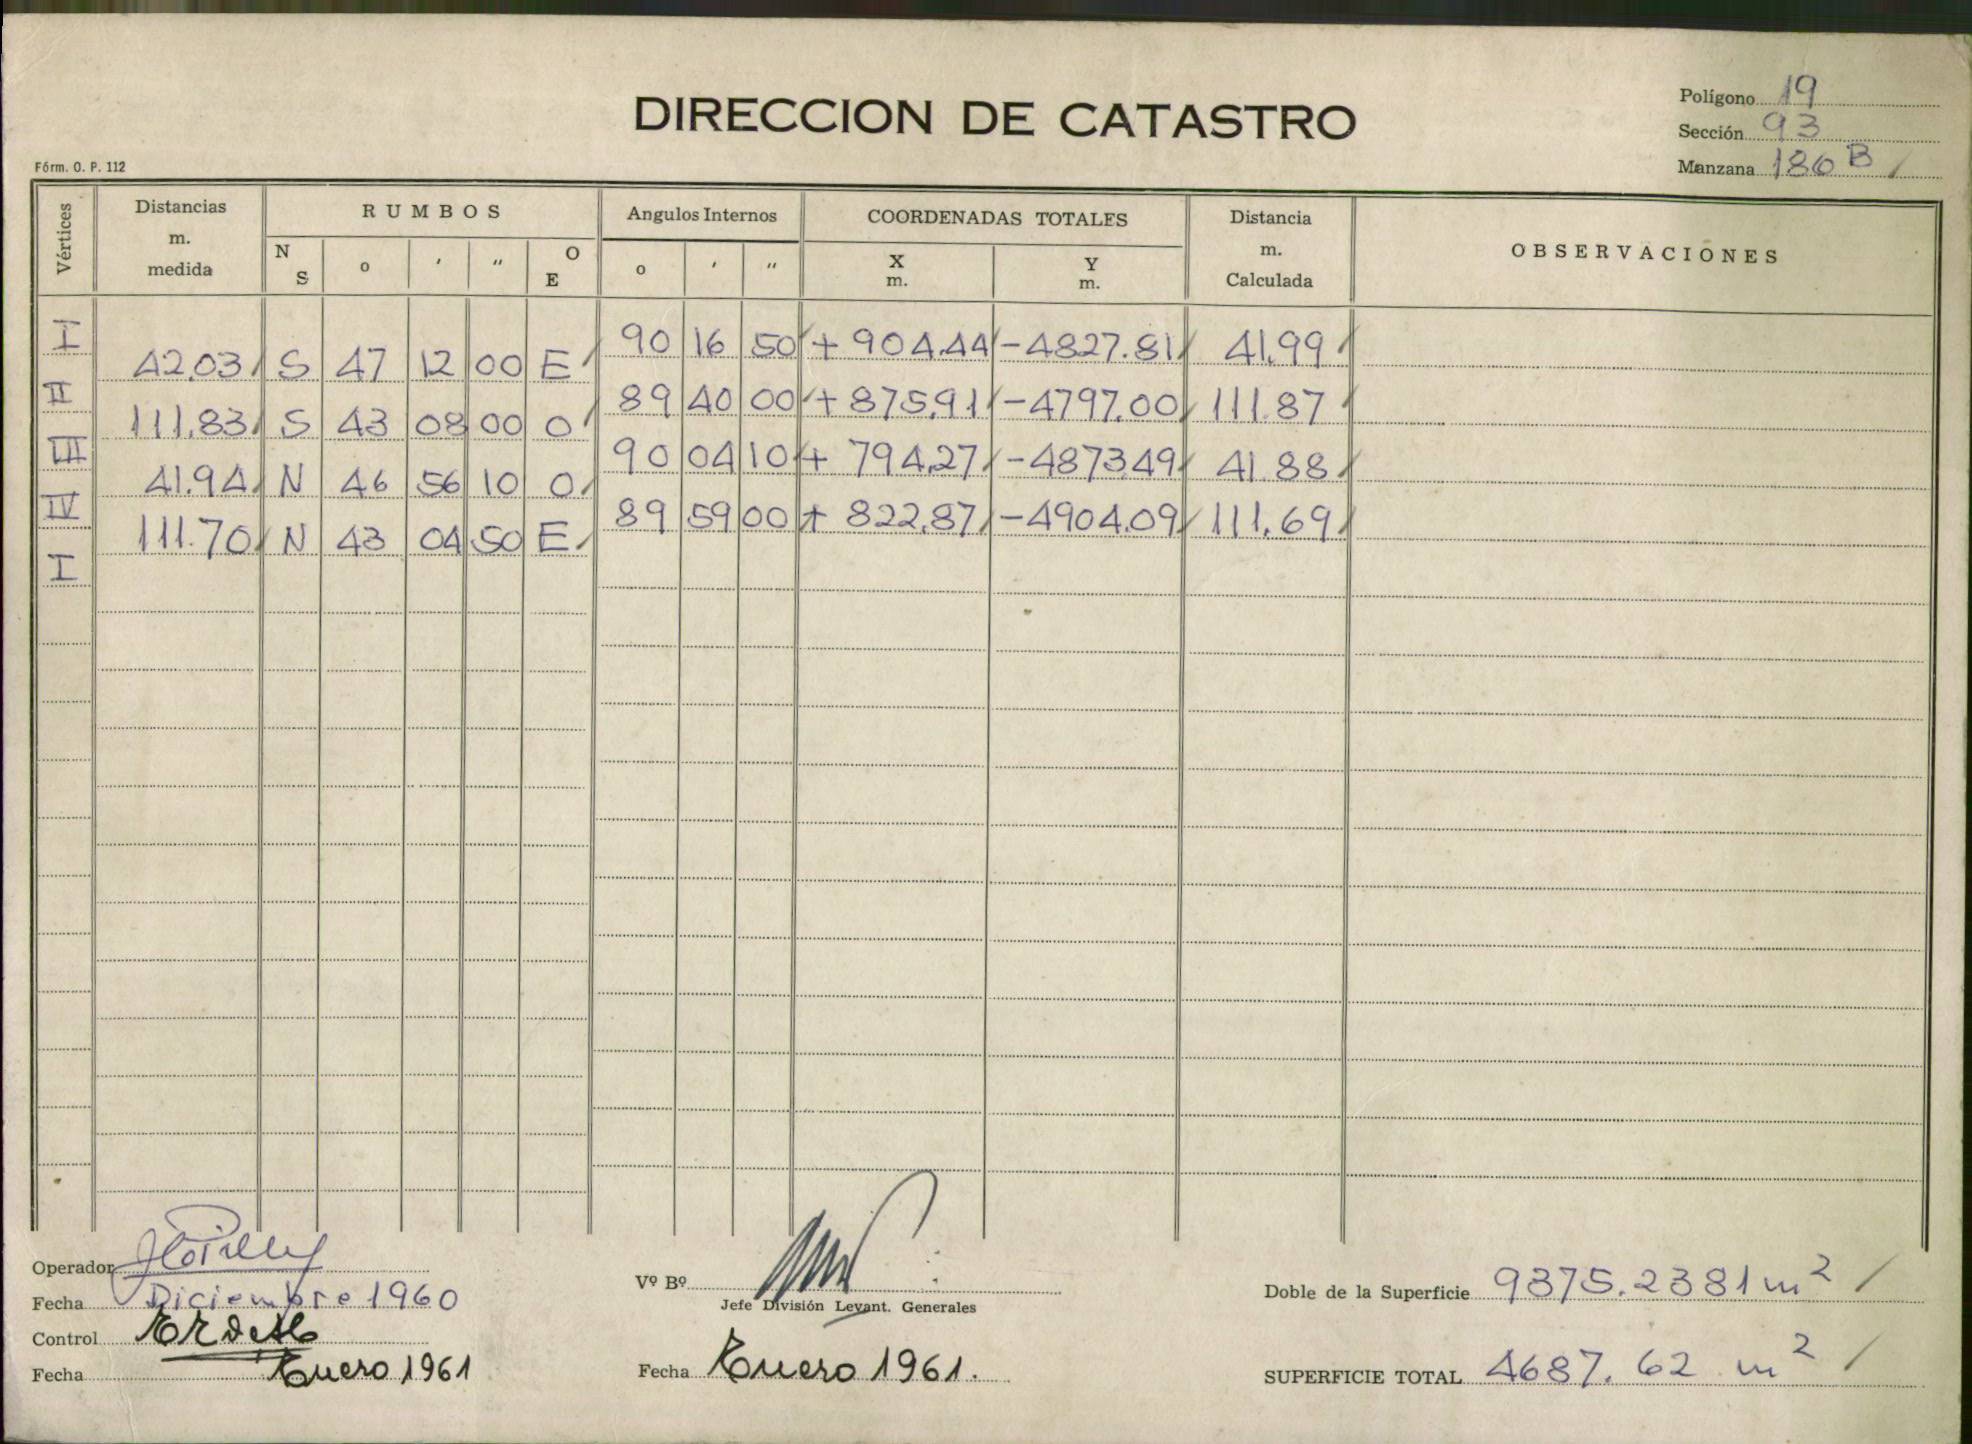 DIRECCION DE CATASTRO
Polígono 19
Sección 93
Manzana 186 B
Fórm. O. P. 112
Vértices Distancias m. medida RUMBOS N S o ′ ″ O E Angulos Internos o ′ ″ COORDENADAS TOTALES X m. Y m. Distancia m. Calculada OBSERVACIONES
I 90 16 50 + 904.44 -4827.81 41.99
42.03 S 47 12 00 E
II 89 40 00 + 875.91 -4797.00 111.87
111.83 S 43 08 00 O
III 90 04 10 + 794.27 -4873.49 41.88
41.94 N 46 56 10 O
IV 89 59 00 + 822.87 -4904.09 111.69
111.70 N 43 04 50 E
I
Operador
Fecha Diciembre 1960
Control
Fecha Enero 1961
Vº Bº
Jefe División Levant. Generales
Fecha Enero 1961.
Doble de la Superficie 9375.2381 m2
SUPERFICIE TOTAL 4687.62 m2